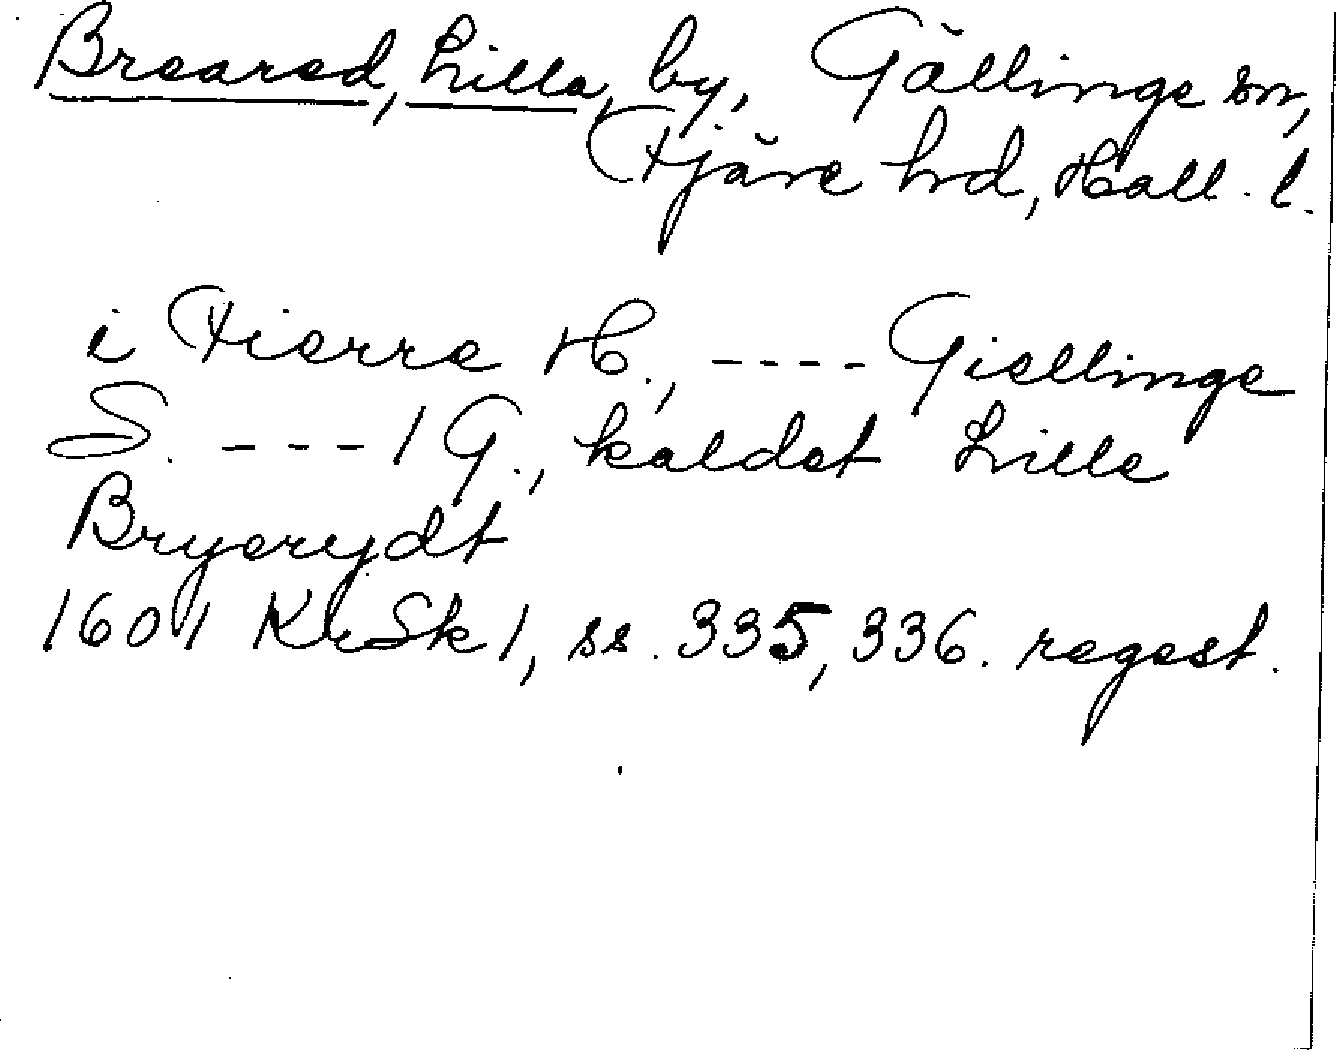 Breared, Lilla, by, Gällinge sn,
Fjäre hd, Hall. l.
i Fierre H., ---- Giellinge
S. --- 1 G., kaldet Lille
Bryerydt
1601 KrSk 1, ss. 335, 336. regest.